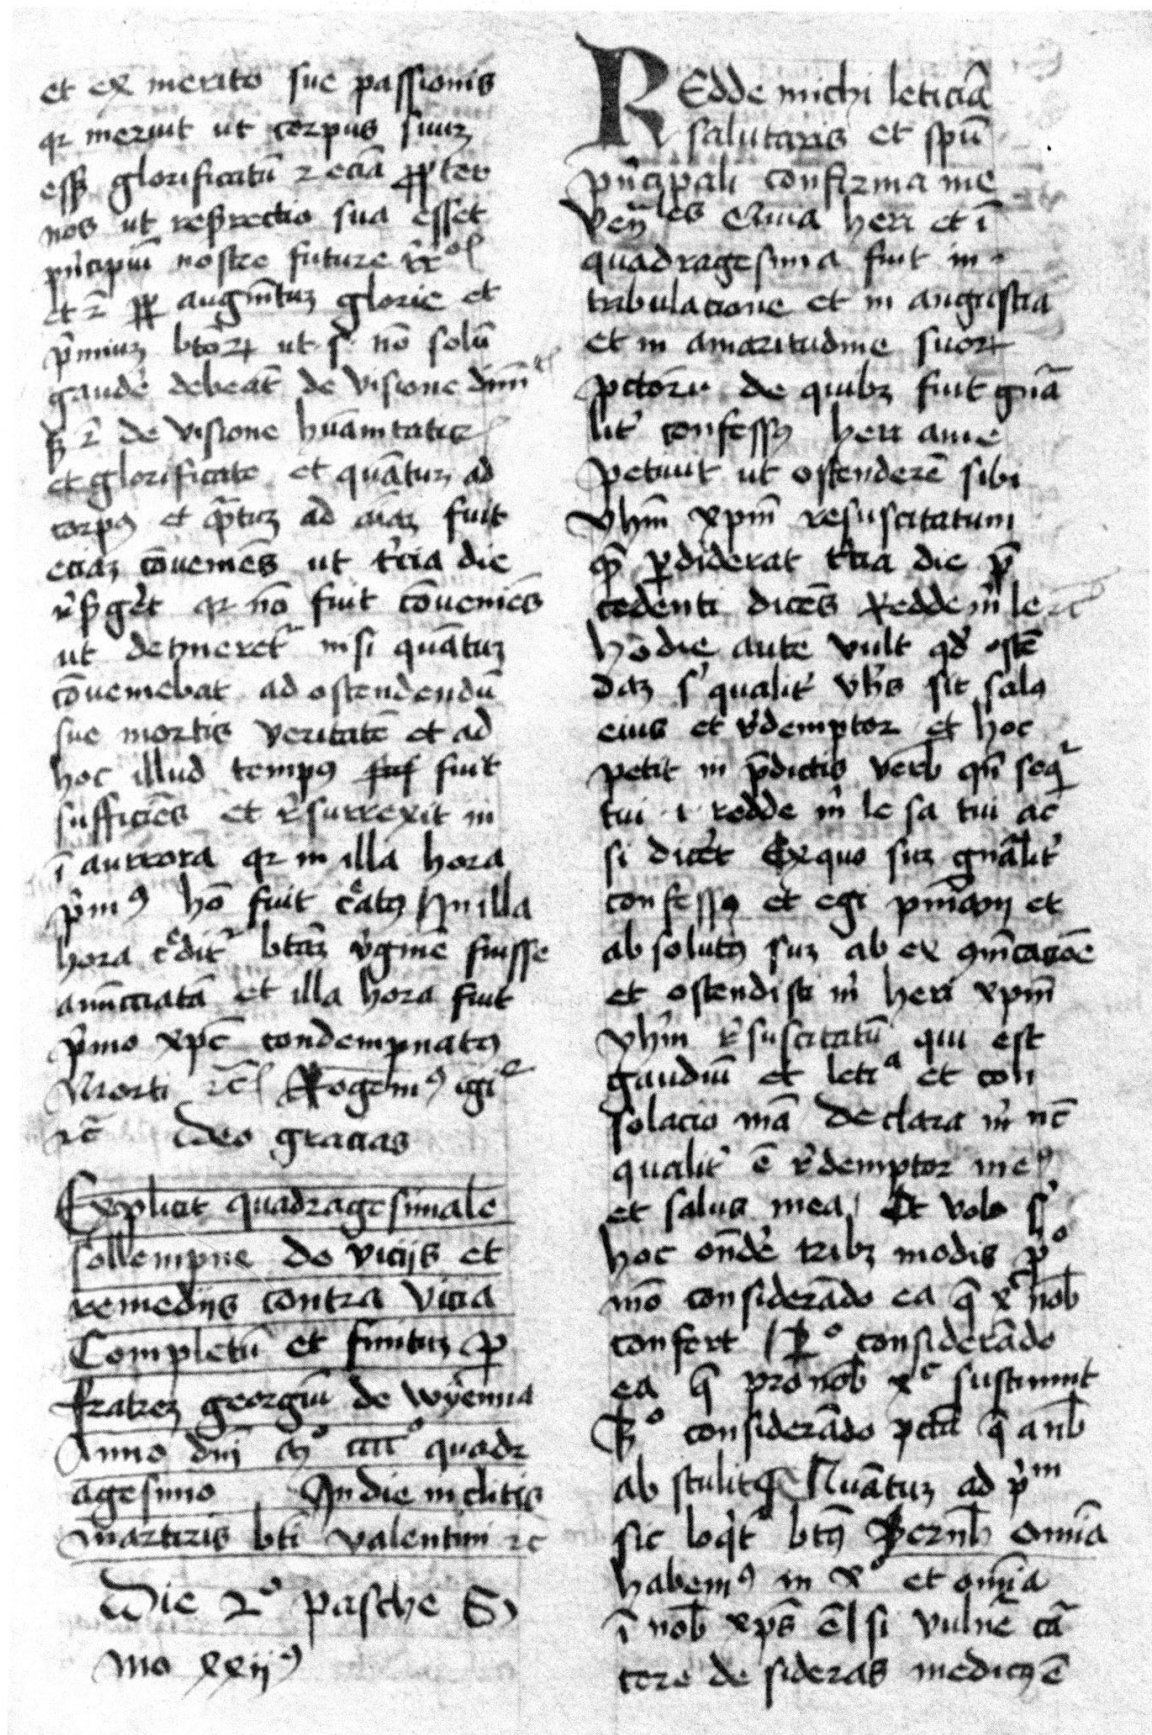 et ex merito sue passionis
qr meruit ut corpus suuz
esset glorificatū et eciā ꝓpter
nos ut resrectio sua esset
pncipiū nostre future
augmtuz glorie et
pmiuz btor ut s nō solū
gaudē debeāt de visione
de visione hūanitatis
et glorificate et quātuz ad
corpꝰ et qtuz ad aīaz fuit
eciaz cōueniēs ut tcia die
rsget qr nō fuit cōueniēs
ut detineret nisi quātuz
cōueniebat ad ostendendū
sue mortis veritatē et ad
hoc illud tempꝰ fuit
sufficiēs et rsurrexit in
ī aurrora qr in illa hora
pmꝰ hō fuit catꝰ In illa
hora cdit btaz vgine fuisse
anūcciatā et illa hora fuit
pmo xpc condempnatꝰ
Morti rc Rogemꝰ igi
rc Deo gracias
Explicit quadragesimale
sollempne de vicijs et
remedijs contra vicia
Completū et finituz ꝑ
fratrez georgiū de wyenna
Anno dnj mᵒ ccccᵒ quadr
agesimo In die inclitis
martiris bti valentini rc
Die 2ᵒ pasche S
mo xxijꝰ
REdde michi leticiā
salutaris et spū
pncipali confirma me
heri et ī
quadragesima fuit in
tribulacione et in angustia
et in amaritudine suor
pctoru de quibz fuit gnā
lit confessꝰ heri a me
petiuit ut ostenderē sibi
yhm xpm resuscitatum
quē ꝑdiderat tcia die p
cedenti dicēs Redde m le
hodie aute vult qd ostē
daz s qualit yhs sit salꝰ
eius et rdemptor et hoc
petit in pdictis verb qn seq
tui · r redde m le sa tui ac
si dicet Ex quo suz gnālit
confessꝰ et egi pniam et
absolutꝰ suz ab ex
et ostendisti m heri xpm
yhm rsuscitatū qui est
gaudiū et letiᵃ et con
solacio mā declara m nc
qualit ē rdemptor meꝰ
et salus mea Et volo s
hoc ondē tribz modis pᵒ
mō considerādo ea q xᶜ nob
confert 2ᵒ considerādo
ea q pro nob xᶜ sustinuit
3ᵒ considerādo pcta q a nb
abstulit Quātuz ad pᵐ
sic loqt btꝰ Bernh Omīa
habemꝰ in xᵒ et omīa
ī nob xps ē si vulnē cā
tere desideras medicꝰ ē